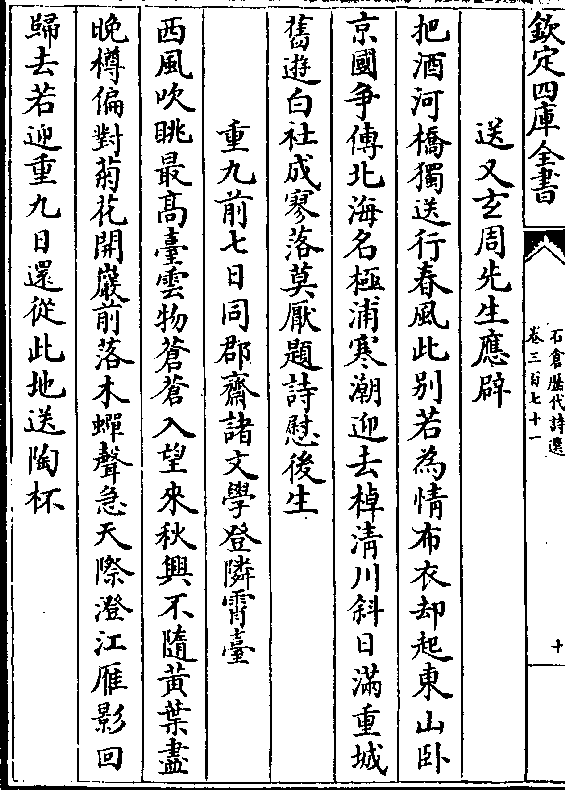 欽定四庫全書
石倉歷代詩選
卷三百七十一
十
送又玄周先生應辟
把酒河橋獨送行春風此別若為情布衣却起東山卧
京國争傳北海名極浦寒潮迎去棹清川斜日滿重城
舊遊白社成寥落莫厭題詩慰後生
重九前七日同郡齋諸文學登隣霄臺
西風吹眺最髙臺雲物蒼蒼入望來秋興不隨黄葉盡
晚樽偏對菊花開巖前落木蟬聲急天際澄江雁影回
歸去若迎重九日還從此地送陶杯